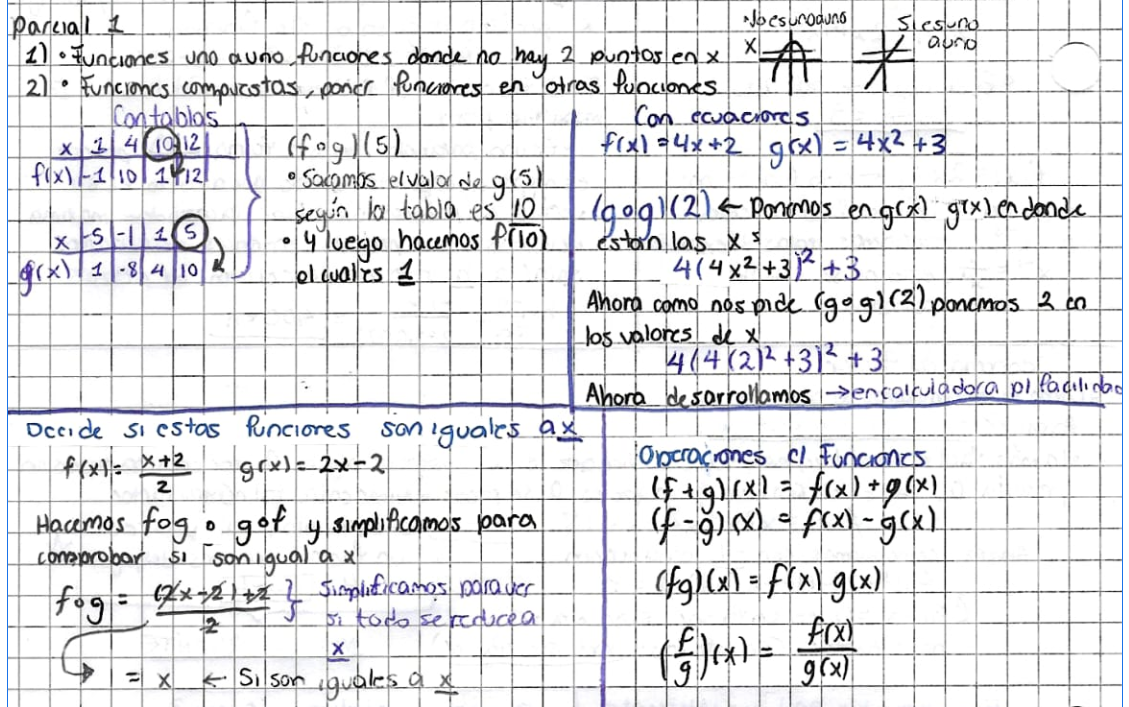 Parcial 1
No es uno a uno
Si es uno a uno
1) • Funciones uno a uno, funciones donde no hay 2 puntos en x
x
2) • Funciones compuestas, poner funciones en otras funciones
Con tablas
x 1 4 10 12
f(x) -1 10 1 12
x -5 -1 1 5
g(x) 1 -8 4 10
(f∘g)(5)
• Sacamos el valor de g(5)
según la tabla es 10
• y luego hacemos f(10)
el cual es 1
Con ecuaciones
f(x) = 4x+2 g(x) = 4x² + 3
(g∘g)(2) ← Ponemos en g(x) g(x) en donde
estan las x s
4(4x²+3)² + 3
Ahora como nos pide (g∘g)(2) ponemos 2 en
los valores de x
4(4(2)² +3)² + 3
Ahora desarrollamos → en calculadora p/ facilidad
Decide si estas funciones son iguales a x
f(x) = x+2 / 2 g(x) = 2x-2
Hacemos fog o gof y simplificamos para
comprobar si son igual a x
fog = (2x-2)+2 / 2 } Simplificamos para ver
si todo se reduce a
x
= x ← Si son iguales a x
Operaciones c/ Funciones
(f+g)(x) = f(x)+g(x)
(f-g)(x) = f(x)-g(x)
(fg)(x) = f(x) g(x)
(f/g)(x) = f(x)/g(x)